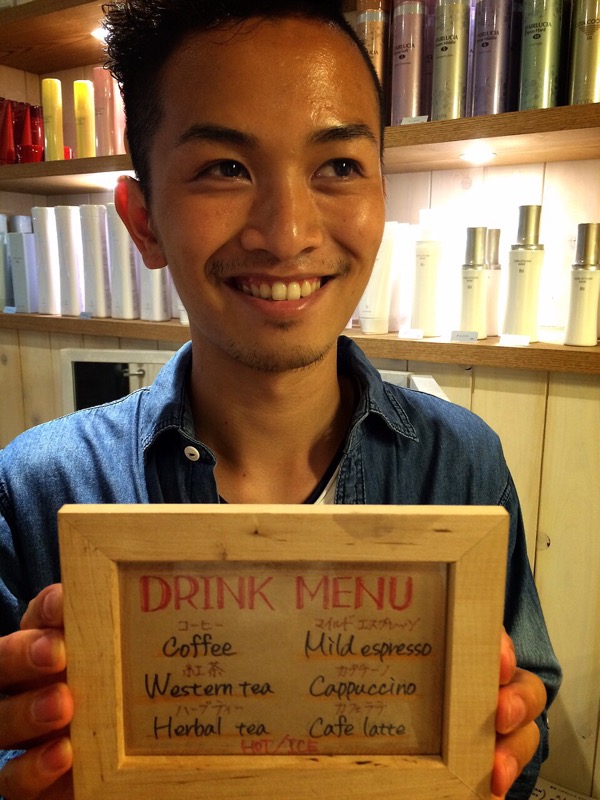 DRINK MENU
コーヒー
Coffee
マイルド エスプレッソ
Mild espresso
紅茶
Western tea
カプチーノ
Cappuccino
ハーブティー
Herbal tea
カフェラテ
Cafe latte
HOT/ICE